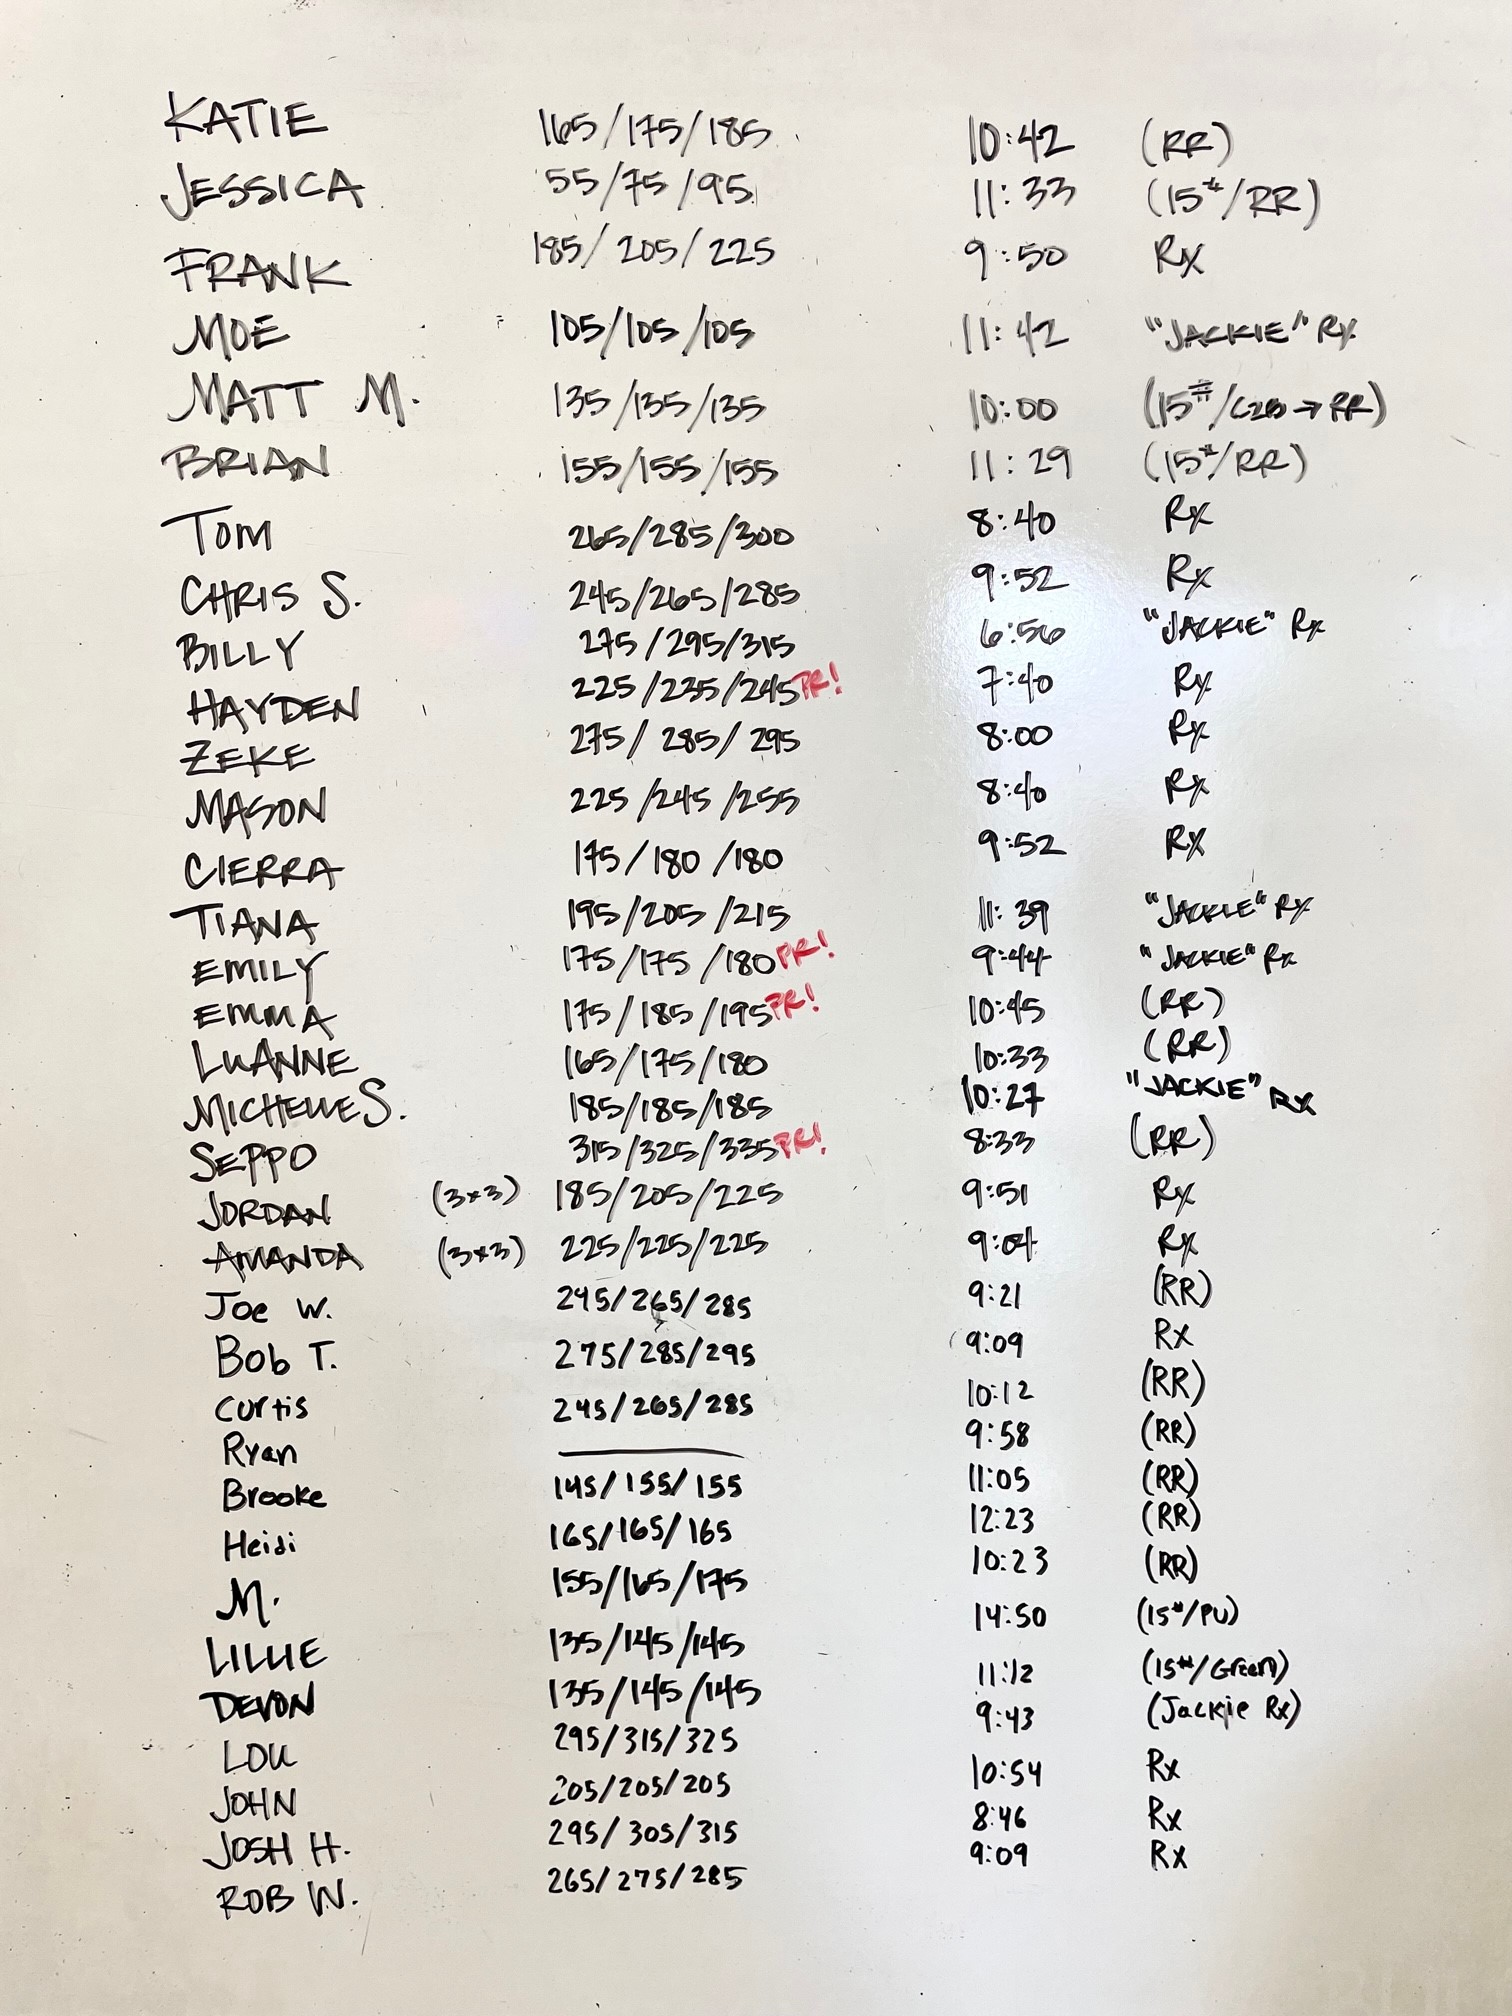 KATIE 165/175/185 10:42 (RR)
JESSICA 55/75/95 11:33 (15#/RR)
FRANK 185/205/225 9:50 Rx
MOE 105/105/105 11:42 "JACKIE" Rx
MATT M. 135/135/135 10:00 (15#/C2B→RR)
BRIAN 155/155/155 11:29 (15#/RR)
TOM 265/285/300 8:40 Rx
CHRIS S. 245/265/285 9:52 Rx
BILLY 275/295/315 6:56 "JACKIE" Rx
HAYDEN 225/235/245 PR! 7:40 Rx
ZEKE 275/285/295 8:00 Rx
MASON 225/245/255 8:40 Rx
CIERRA 175/180/180 9:52 Rx
TIANA 195/205/215 11:39 "JACKIE" Rx
EMILY 175/175/180 PR! 9:44 "JACKIE" Rx
EMMA 175/185/195 PR! 10:45 (RR)
LUANNE 165/175/180 10:33 (RR)
MICHELLE S. 185/185/185 10:27 "JACKIE" Rx
SEPPO 315/325/335 PR! 8:33 (RR)
JORDAN (3x3) 185/205/225 9:51 Rx
AMANDA (3x3) 225/225/225 9:04 Rx
Joe W. 245/265/285 9:21 (RR)
Bob T. 275/285/295 9:09 Rx
Curtis 245/265/285 10:12 (RR)
Ryan — 9:58 (RR)
Brooke 145/155/155 11:05 (RR)
Heidi 165/165/165 12:23 (RR)
M. 155/165/175 10:23 (RR)
LILLIE 135/145/145 14:50 (15#/PU)
DEVON 135/145/145 11:12 (15#/Green)
LOU 295/315/325 9:43 (Jackie Rx)
JOHN 205/205/205 10:54 Rx
JOSH H. 295/305/315 8:46 Rx
ROB W. 265/275/285 9:09 Rx